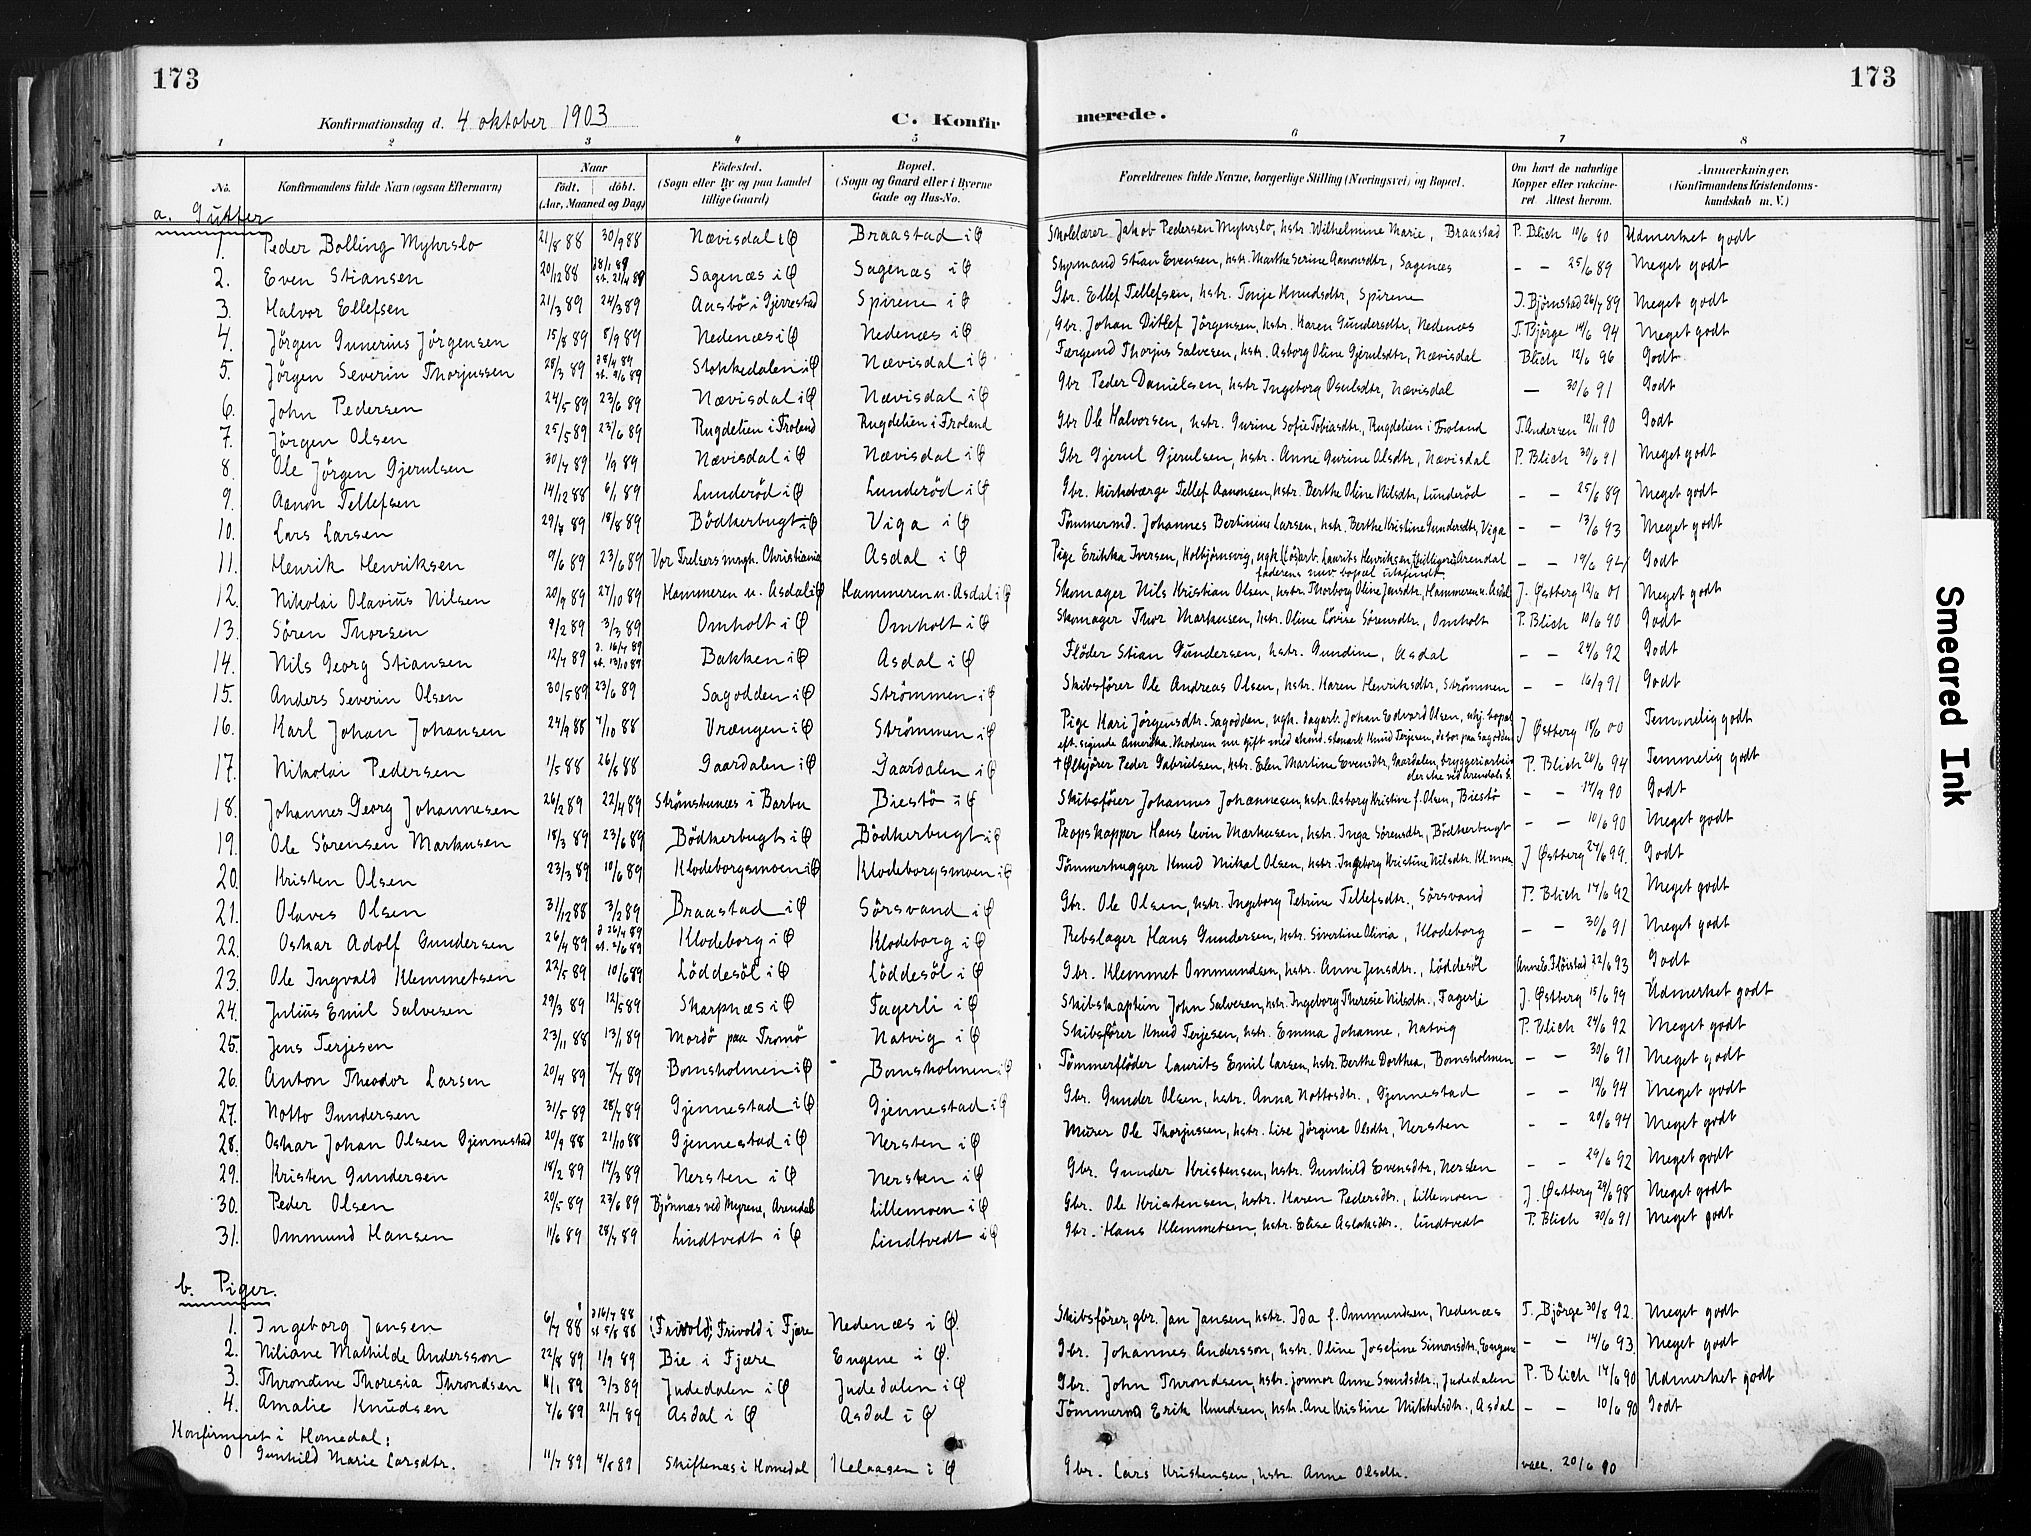 173
173
Konfirmationsdag d. 4 oktober 1903
C. Konfir merede.
1 2 3 4 5 6 7 8
No. Konfirmandens fulde Navn (ogsaa Efternavn) Naar født. døbt. (Aar, Maaned og Dag) Fødested. (Sogn eller By og paa Landet tillige Gaard) Bopæl. (Sogn og Gaard eller i Byerne Gade og Hus-No. Forældrenes fulde Navne, borgerlige Stilling (Næringsvei) og Bopæl. Om havt de naturlige Kopper eller vaccineret. Attest herom. Anmærkninger. (Konfirmandens Kristendomskundskab m. V.)
a. Gutter
1. Peder Bolling Myhrslo 21/8 88 30/9 88 Nævisdal i Ø Braastad i Ø Skolelærer Jakob Pedersen Myhrslo, hstr. Wilhelmine Marie, Braastad P. Blich 10/6 90 Udmerket godt
2. Even Stiansen 20/12 88 28/1 89 st. 21/4 89 Sagenæs i Ø Sagenæs i Ø Styrmand Stian Evensen, hstr. Marthe Serine Aanonsdtr, Sagenæs – – 25/6 89 Meget godt
3. Halvor Ellefsen 21/3 89 24/3 89 Aasbø i Gjerrestad Spirene i Ø Gbr. Ellef Tellefsen, hstr. Tonje Knudsdtr, Spirene J. Bjørnstad 26/7 89 Meget godt
4. Jörgen Gunerius Jörgensen 15/8 89 8/9 89 Nedenæs i Ø Nedenæs i Ø Gbr. Johan Ditlef Jörgensen, hstr. Karen Gundersdtr, Nedenæs T. Bjørge 19/6 94 Meget godt
5. Jörgen Severin Thorjussen 28/3 89 d 28/4 89 st. 9/6 89 Stokkedalen i Ø Nævisdal i Ø Færgemd Thorjus Salvesen, hstr. Asborg Oline Gjerulsdtr, Nævisdal Blich 12/6 96 Godt
6. John Pedersen 24/5 89 23/6 89 Nævisdal i Ø Nævisdal i Ø Gbr Peder Danielsen, hstr Ingeborg Osulsdtr, Nævisdal — 30/6 91 Godt
7. Jörgen Olsen 25/5 89 23/6 89 Rugdelien i Froland Rugdelien i Froland Gbr Ole Halvorsen, hstr. Gurine Sofie Tobiasdtr., Rugdelien i Froland T. Andersen 12/11 90 Godt
8. Ole Jörgen Gjerulsen 30/7 89 1/9 89 Nævisdal i Ø Nævisdal i Ø Gbr Gjerul Gjerulsen, hstr. Anne Gurine Olsdtr, Nævisdal P. Blich 30/6 91 Meget godt
9. Aanon Tellefsen 14/12 88 6/1 89 Lunderöd i Ø Lunderöd i Ø Gbr. Kirkeværge Tellef Aanonsen, hstr. Berthe Oline Nilsdtr, Lunderöd – – 25/6 89 Meget godt
10. Lars Larsen 29/7 89 18/8 89 Bödkerbugt i Ø Viga i Ø Tömmermd. Johannes Bertinius Larsen, hstr. Berthe Kristine Gundersdtr, Viga – – 13/6 93 Meget godt
11. Henrik Henriksen 9/6 89 23/6 89 Vor Frelsers mngh. Christiania Asdal i Ø Pige Erikka Iversen, Kolbjørnsvig, ugk. (Lösarb. Laurits Henriksen, Arendal faderens nuv. bopæl ubekjendt – – 19/6 94 Godt
12. Nikolai Olavius Nilsen 20/9 89 27/10 89 Hammeren u. Asdal i Ø Hammeren u. Asdal i Ø Skomager Nils Kristian Olsen, hstr. Thorborg Oline Jensdtr, Hammeren u. Asdal J. Østberg 12/6 01 Meget godt
13. Sören Thorsen 9/2 89 3/3 89 Omholt i Ø Omholt i Ø Skomager Thor Markusen, hstr. Oline Lovise Sörensdtr, Omholt P. Blich 10/6 90 Godt
14. Nils Georg Stiansen 12/7 89 d. 16/7 89 st. 13/10 89 Bakken i Ø Asdal i Ø Flöder Stian Gundersen, hstr. Gundine, Asdal – – 24/6 92 Godt
15. Anders Severin Olsen 30/5 89 23/6 89 Sagodden i Ø Strömmen i Ø Skibsförer Ole Andreas Olsen, hstr. Karen Henriksdtr, Strömmen – – 16/9 91 Godt
16. Karl Johan Johansen 24/9 88 7/10 88 Vrængen i Ø Strömmen i Ø Pige Kari Jörgensdtr. Sagodden, ugh. dagarb. Johan Edvard Olsen, ubj. bopæl eft. sigende Amerika. Moderen nu gift med Knud Terjesen, de bor paa Sagodden J Østberg 18/6 00 Temmelig godt
17. Nikolai Pedersen 1/5 88 26/8 88 Gaardalen i Ø Gaardalen i Ø † Ølkjörer Peder Gabrielsen, hstr. Elen Martine Evensdtr, Gaardalen, bryggeriarbeider P. Blich 20/6 94 Temmelig godt
18. Johannes Georg Johannesen 26/2 89 22/4 89 Strömsbunæs i Barbu Biestö i Ø Skibsförer Johannes Johannesen, hstr. Asborg Kristine f. Olsen, Biestö – – 17/9 90 Godt
19. Ole Sörensen Markusen 18/3 89 23/6 89 Bödkerbugt i Ø Bödkerbugt i Ø Propskapper Hans Levin Markusen, hstr. Inga Sörensdtr, Bödkerbugt – – 10/6 90 Meget godt
20. Kristen Olsen 23/3 89 10/6 89 Klodeborgsmoen i Ø Klodeborgsmoen i Ø Tömmerhugger Knud Mikal Olsen, hstr. Ingeborg Kristine Nilsdtr. Kl.moen J Østberg 24/6 99. Godt
21. Olaves Olsen 31/12 88 3/2 89 Braastad i Ø Sörsvand i Ø Gbr. Ole Olsen, hstr. Ingeborg Petrine Tellefsdtr., Sörsvand P. Blich 17/6 92 Meget godt
22. Oskar Adolf Gundersen 26/4 89 d 26/4 89 st. 2/6 89 Klodeborg i Ø Klodeborg i Ø Rebslager Hans Gundersen, hstr. Sivertine Olivia, Klodeborg – – 30/6 91 Meget godt
23. Ole Ingvald Klemmetsen 22/5 89 10/6 89 Löddesöl i Ø Löddesöl i Ø Gbr. Klemmet Ommundsen, hstr. Anne Jensdtr., Löddesöl Anne E. Fløistad 22/6 93 Godt
24. Julius Emil Salvesen 29/3 89 12/5 89 Skarpnæs i Ø Fagerli i Ø Skibskaptein John Salvesen, hstr. Ingeborg Theresie Nilsdtr., Fagerli J. Østberg 15/6 99 Udmerket godt
25. Jens Terjesen 23/11 88 13/1 89 Mardö paa Tromö Natvig i Ø Skibsförer Knud Terjesen, hstr. Emma Johanne, Natvig P. Blich 24/6 92 Meget godt
26. Anton Theodor Larsen 20/4 89 7/7 89 Bomsholmen i Ø Bomsholmen i Ø Tömmerflöder Laurits Emil Larsen, hstr. Berthe Dorthea, Bomsholmen – – 30/6 91 Meget godt
27. Notto Gundersen 31/5 89 28/7 89 Gjennestad i Ø Gjennestad i Ø Gbr. Gunder Olsen, hstr. Anna Nottosdtr., Gjennestad – – 12/6 94 Meget godt
28. Oskar Johan Olsen Gjennestad 20/9 88 21/10 88 Gjennestad i Ø Nersten i Ø Murer Ole Thorjussen, hstr. Lise Jörgine Olsdtr, Nersten – – 20/6 94 Meget godt
29. Kristen Gundersen 18/2 89 17/3 89 Nersten i Ø Nersten i Ø Gbr. Gunder Kristensen, hstr. Gunhild Evensdtr, Nersten – – 29/6 92 Meget godt
30. Peder Olsen 20/5 89 23/6 89 Bjönnæs ved Myrene, Arendal Lillemoen i Ø Gbr. Ole Kristensen, hstr. Karen Pedersdtr., Lillemoen J. Østberg 29/6 98 Meget godt
31. Ommund Hansen 11/6 89 28/7 89 Lindtvedt i Ø Lindtvedt i Ø Gbr. Hans Klemmetsen, hstr. Elise Aslaksdtr., Lindtvedt P. Blich 30/6 91 Meget godt
b. Piger.
1. Ingeborg Jansen 6/7 88 d 16/7 88 st 5/8 88 Frivold i Fjære Nedenæs i Ø. Skibsförer, gbr. Jan Jansen, hstr. Ida f. Ommundsen, Nedenæs T. Bjørge 30/8 92. Meget godt
2. Niliane Mathilde Andersson 22/8 89 1/9 89 Bie i Fjære Engene i Ø. Gbr. Johannes Andersson, hstr. Oline Josefine Simonsdtr, Engene – – 14/6 93. Meget godt
3. Throndine Thoresia Throndsen 11/1 89 3/3 89 Judedalen i Ø Judedalen i Ø Gbr. John Throndsen, hstr. jormor Anne Svendsdtr., Judedalen P. Blich 17/6 90 Udmerket godt
4. Amalie Knudsen 7/6 89 21/7 89 Asdal i Ø Asdal i Ø Tömmermd Erik Knudsen, hstr. Ane Kristine Mikkelsdtr., Asdal – – 10/6 90 Godt
Konfirmeret i Homedal:
0 Gunhild Marie Larsdtr. 11/7 89 4/8 89 Skiftenæs i Homedal Helaasen i Ø Gbr. Lars Kristensen, hstr. Anne Olsdtr. vacc. 20/6 90
Smeared Ink